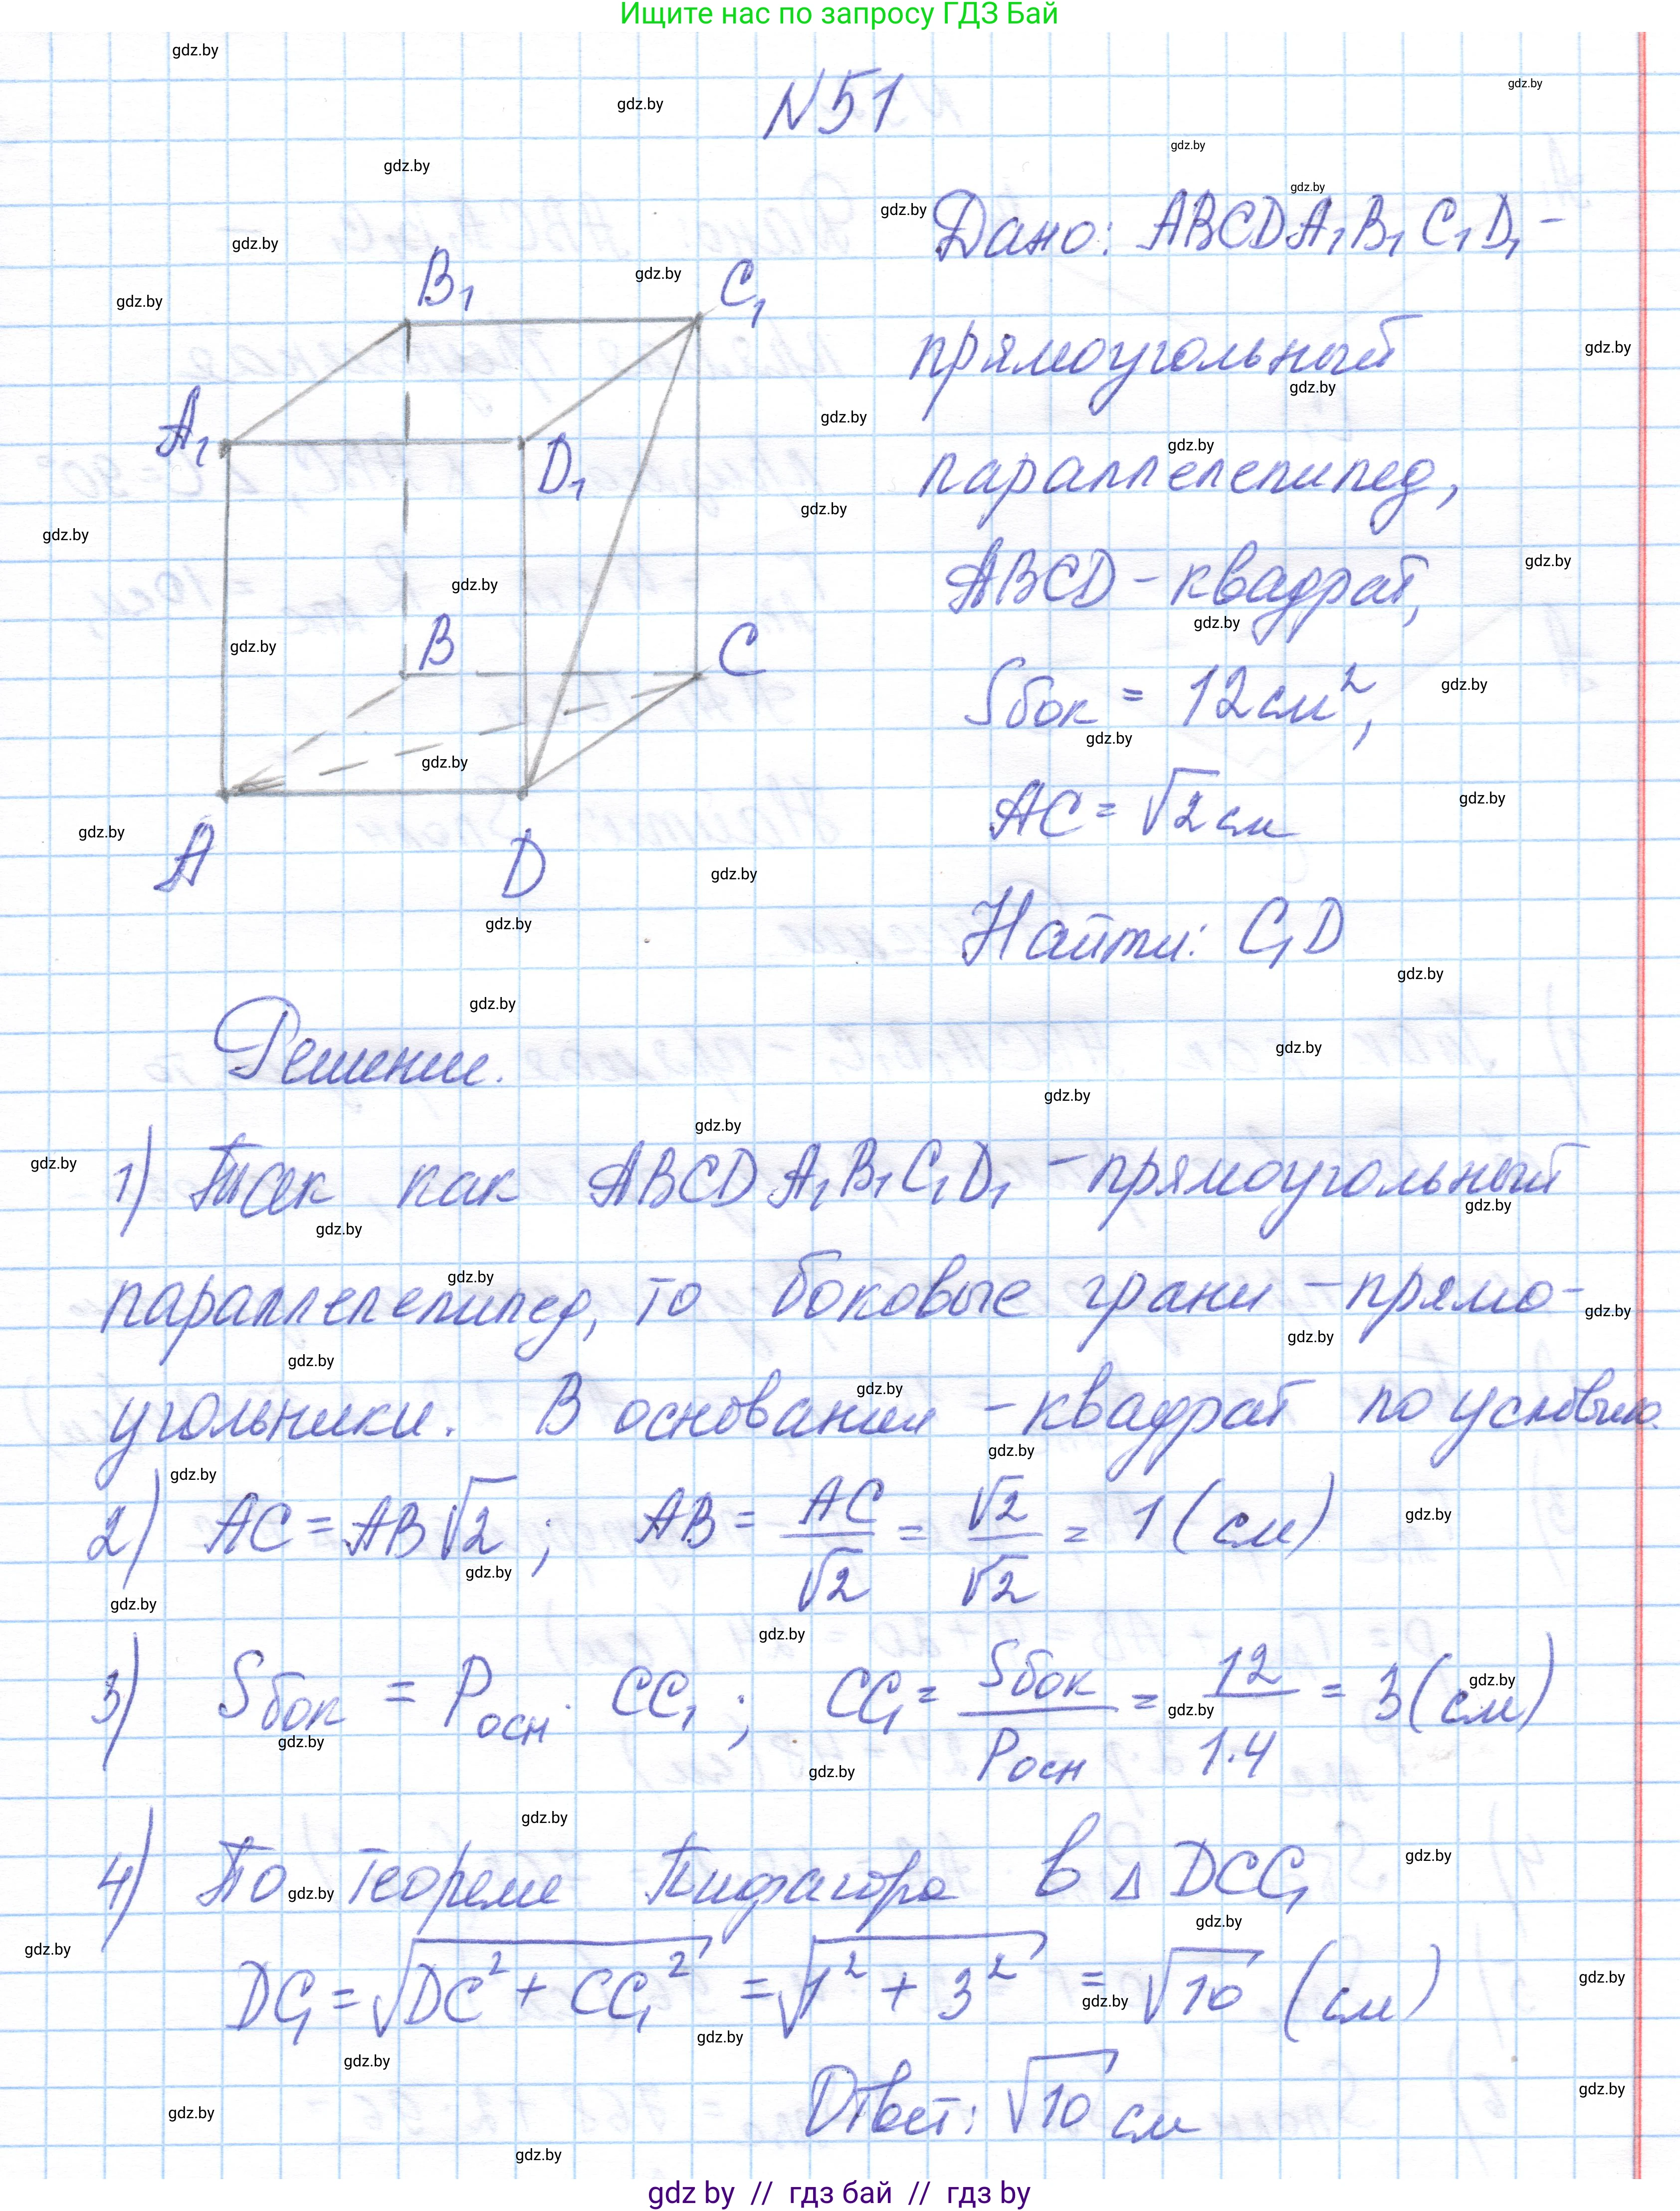 Ищите нас по запросу ГДЗ Бай
N51
Дано: ABCDA₁B₁C₁D₁ -
прямоугольный
параллелепипед,
ABCD - квадрат,
Sбок = 12 см²,
AC = √2 см
Найти: C₁D
B₁
C₁
A₁
D₁
B
C
A
D
Решение.
1) Так как ABCDA₁B₁C₁D₁ - прямоугольный
параллелепипед, то боковые грани - прямо-
угольники. В основании - квадрат по условию.
2) AC = AB√2 ; AB = AC/√2 = √2/√2 = 1 (см)
3) Sбок = Pосн · CC₁ ; CC₁ = Sбок/Pосн = 12/1·4 = 3 (см)
4) По теореме Пифагора в Δ DCC₁
DC₁ = √DC² + CC₁² = √1² + 3² = √10 (см)
Ответ: √10 см
gdz by // гдз бай // гдз by
gdz.by